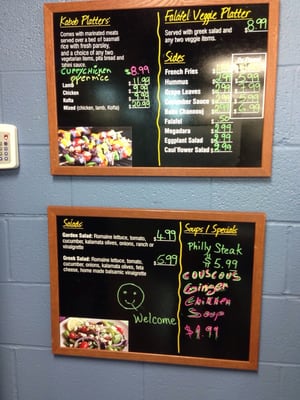 Kabob Platters
Comes with marinated meats
served over a bed of basmati
rice with fresh parsley,
and a choice of any two
vegetarian items, pita bread and
tahini sauce.
Curry chicken $8.99
over rice
Lamb
Chicken
Kofta
Mixed (chicken, lamb, Kofta)
Falafel Veggie Platter
$8.99
Served with greek salad and
any two veggie items.
Sides
French Fries
Hummus
Grape Leaves
Cucumber Sauce
Baba Channouj
Falafel
Megadara
Eggplant Salad
Cauliflower Salad
Salads
Garden Salad: Romaine lettuce, tomato, 4.99
cucumber, kalamata olives, onions, ranch or
vinaigrette
Greek Salad: Romaine lettuce, tomato, 5.99
cucumber, onions, kalamata olives, feta
cheese, home made balsamic vinaigrette
Welcome
Soups / Specials
Philly Steak
$5.99
couscous
Ginger
Chicken
Soup
$4.99